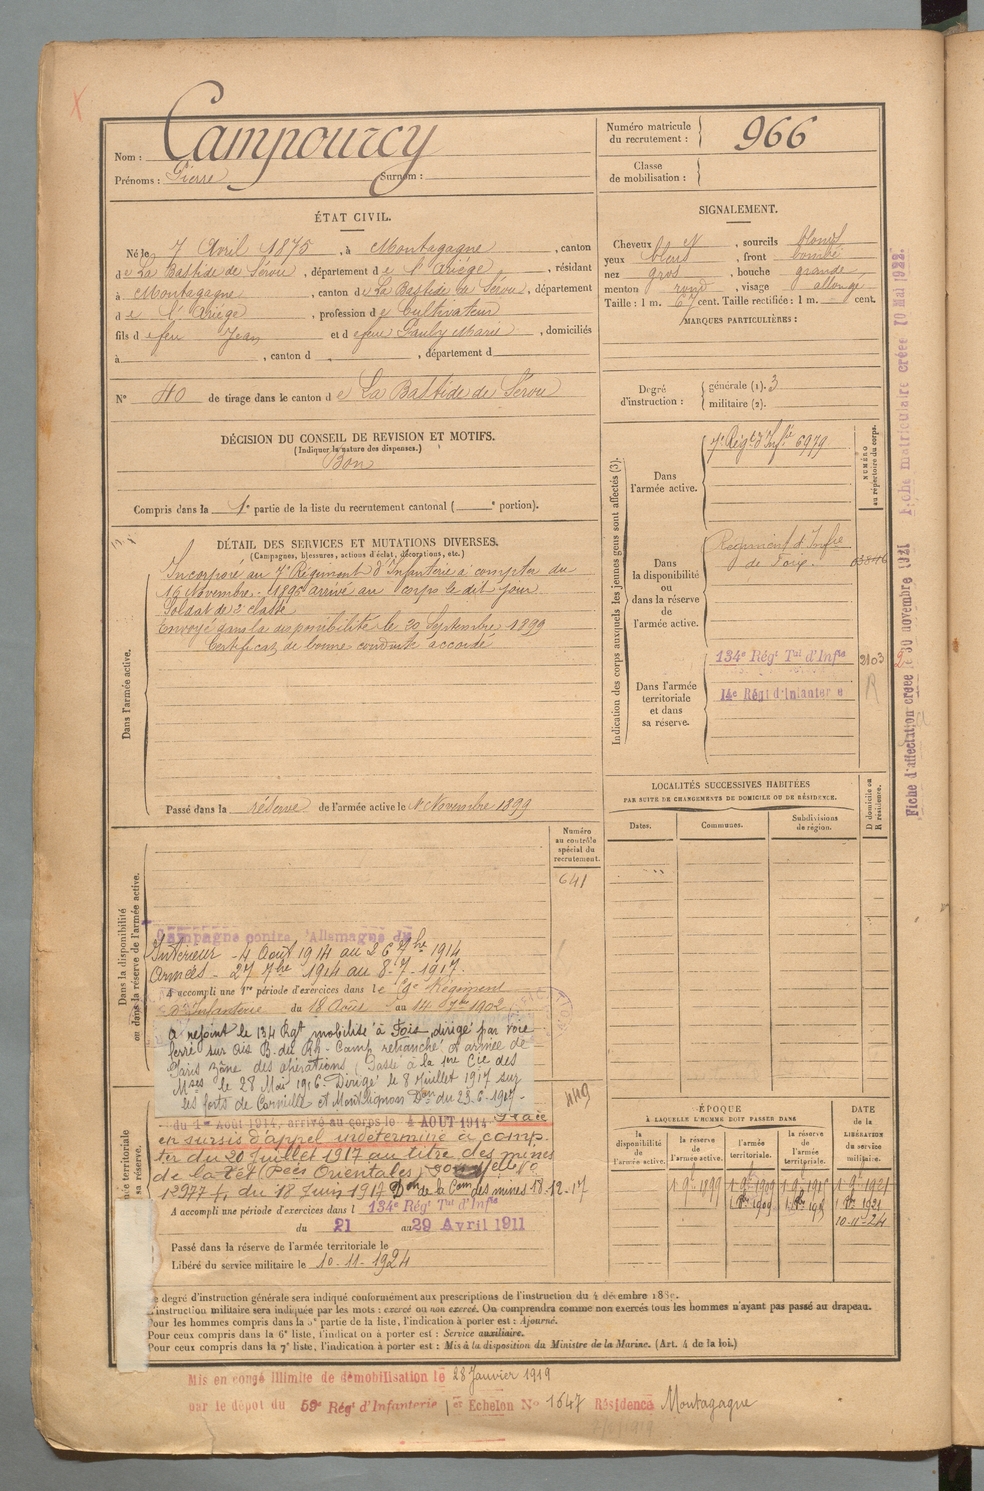 Campourcy
Nom :
Prénoms : Pierre Surnom :
Numéro matricule
du recrutement : 966
Classe
de mobilisation :
ÉTAT CIVIL.
Né le 7 Avril 1875, à Montagagne, canton
de La Bastide de Sérou, département de l'Ariège, résidant
à Montagagne, canton de La Bastide de Sérou, département
de l'Ariège, profession de Cultivateur
fils de feu Jean et de feue Marie, domiciliés
à , canton d , département d
N° 40 de tirage dans le canton de La Bastide de Sérou
SIGNALEMENT.
Cheveux N, sourcils blonds
yeux bleus, front bombé
nez gros, bouche grande
menton rond, visage allongé
Taille : 1 m. 67 cent. Taille rectifiée : 1 m. cent.
MARQUES PARTICULIÈRES :
Degré
d'instruction :
générale (1). 3
militaire (2).
DÉCISION DU CONSEIL DE REVISION ET MOTIFS.
(Indiquer la nature des dispenses.)
Bon
Compris dans la 1e partie de la liste du recrutement cantonal ( e portion).
DÉTAIL DES SERVICES ET MUTATIONS DIVERSES.
(Campagnes, blessures, actions d'éclat, décorations, etc.)
Dans l'armée active.
Incorporé au 7e Régiment d'Infanterie à compter du
16 Novembre 1896 arrivé au corps le dit jour
Soldat de 2e classe
Envoyé dans la disponibilité le 20 Septembre 1899
Certificat de bonne conduite accordé
Passé dans la réserve de l'armée active le 1er Novembre 1899
Indication des corps auxquels les jeunes gens sont affectés (3).
NUMÉRO
au répertoire du corps.
Dans
l'armée active.
7e Régt d'Infie 6979
Dans
la disponibilité
ou
dans la réserve
de
l'armée active.
Régiment d'Infie
de Foix.
Dans l'armée
territoriale
et dans
sa réserve.
134e Régt Tal d'Infie 2103
14e Régt d'Infanterie R
LOCALITÉS SUCCESSIVES HABITÉES
PAR SUITE DE CHANGEMENTS DE DOMICILE OU DE RÉSIDENCE.
Dates. Communes. Subdivisions
de région.
D domicile ou
R résidence.
Fiche d'affectation créée le 30 novembre 1921 Fiche matriculaire créée 10 Mai 1922.
Dans la disponibilité
ou dans la réserve de l'armée active.
Numéro
au contrôle
spécial du
recrutement.
641
Campagne contre l'Allemagne du
Intérieur - 4 Août 1914 au 26 7bre 1914
Armées - 27 7bre 1914 au 8-7-1917.
A accompli une 1re période d'exercices dans le 9e Régiment
d'Infanterie du 18 Août au 14 7bre 1902
A rejoint le 134 Rgt mobilisé à Foix, dirigé par voie
ferré sur Camp retranché d'armée de
Paris zône des opérations. Passé à la 1ère Cie des
le 28 Mai 1916. Dirigé le 8 Juillet 1917 sur
les forts de Cormeille et Montlignon Don du 23-6-1917-
449
du 1er Août 1914, arrivé au corps le 4 AOUT 1914 Placé
en sursis d'appel indéterminé à comp-
ter du 20 Juillet 1917 au titre des mines
de la Têt (Pées Orientales)
12977 f, du 18 Juin 1917 Don de la Com des mines 18-12-17
A accompli une période d'exercices dans l 134e Régt Tal d'Infie
du 21 au 29 Avril 1911
Passé dans la réserve de l'armée territoriale le
Libéré du service militaire le 10-11-1924
ÉPOQUE
À LAQUELLE L'HOMME DOIT PASSER DANS
la
disponibilité
de
l'armée active.
la réserve
de
l'armée active.
l'armée
territoriale.
la réserve
de
l'armée
territoriale.
DATE
de la
LIBÉRATION
du service
militaire.
1 9bre 1899 1 9bre 1909 1 9bre 1915 1 9bre 1921
1 8bre 1909 1 8bre 1915 1 8bre 1921
10-11-24
Le degré d'instruction générale sera indiqué conformément aux prescriptions de l'instruction du 4 décembre 1889.
L'instruction militaire sera indiquée par les mots : exercé ou non exercé. On comprendra comme non exercés tous les hommes n'ayant pas passé au drapeau.
Pour les hommes compris dans la 5e partie de la liste, l'indication à porter est : Ajourné.
Pour ceux compris dans la 6e liste, l'indication à porter est : Service auxiliaire.
Pour ceux compris dans la 7e liste, l'indication à porter est : Mis à la disposition du Ministre de la Marine. (Art. 4 de la loi.)
Mis en congé illimité de démobilisation le 28 Janvier 1919
par le dépôt du 59e Régt d'Infanterie 1er Echelon N° 1647 Résidence Montagagne